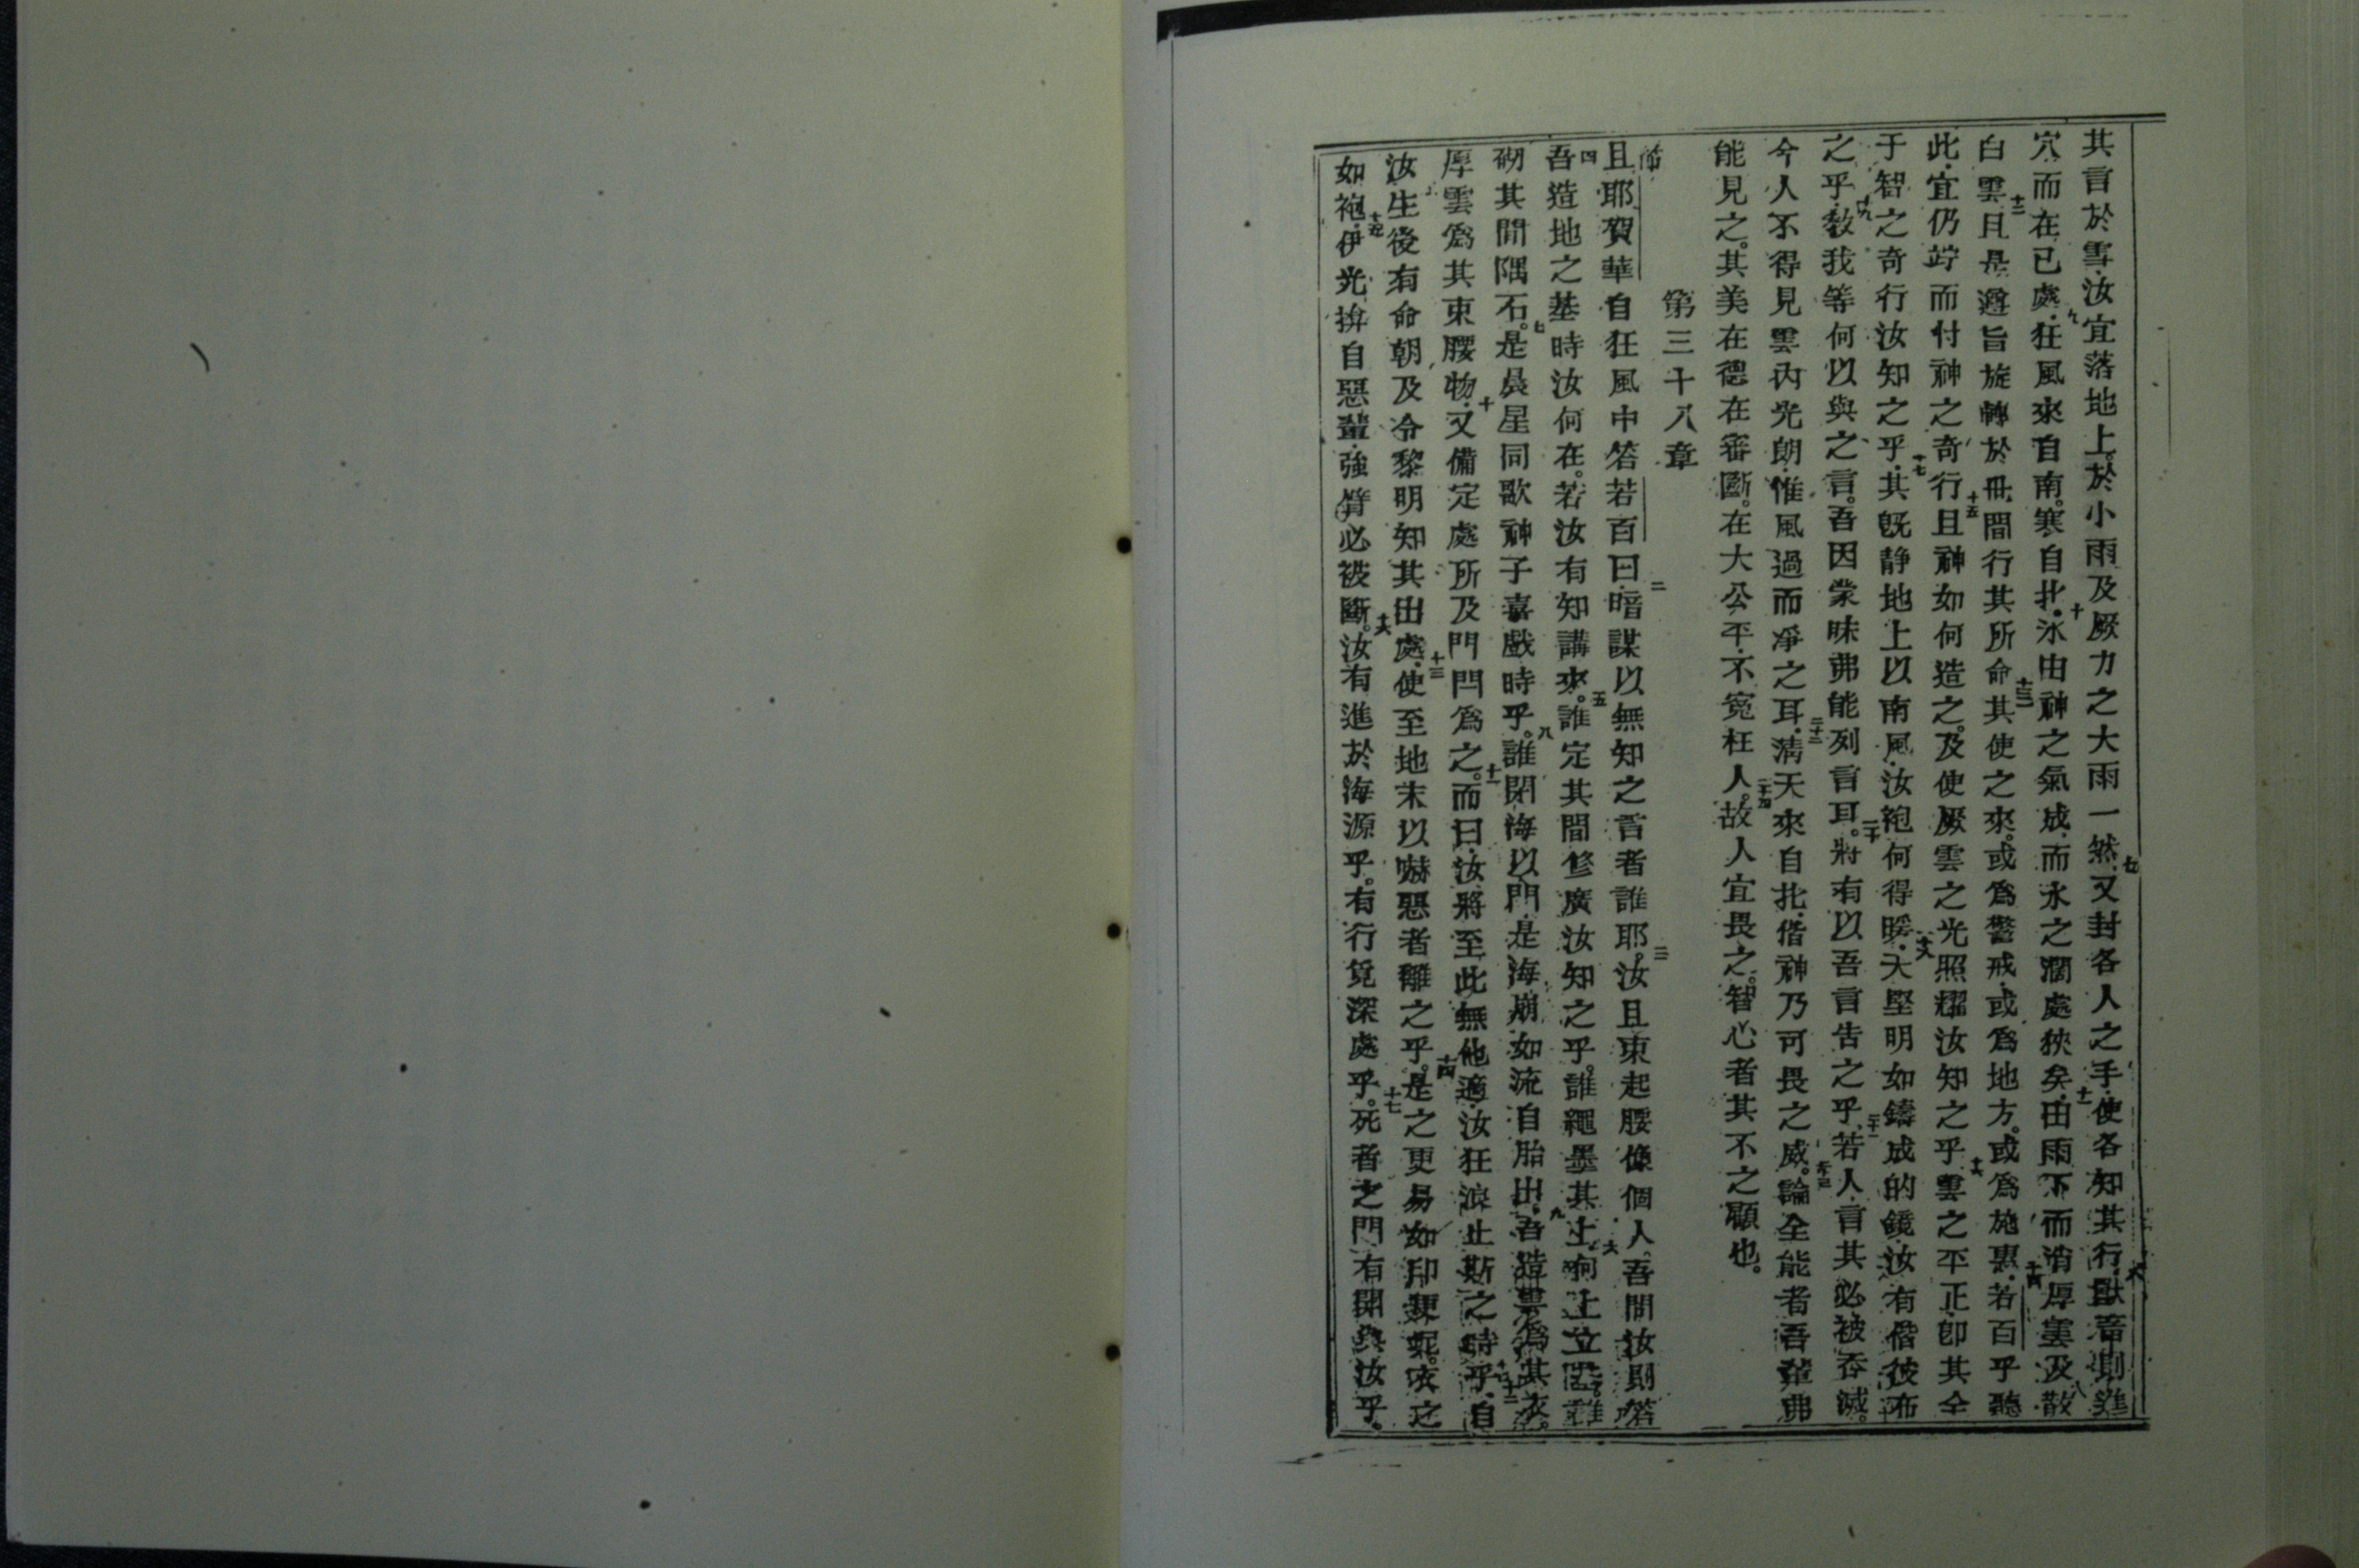 其言於雪汝宜落地上於小雨及厥力之大雨一然七又封各人之手使各知其行八獸𠯁則進
穴而在已處九狂風來自南寒自北十氷由神之氣成而水之濶處狹矣十一由雨下而消厚雲及散
白雲十二且是遵旨旋轉於世間行其所命十三其使之來或爲警戒或爲地方或爲施惠十四若百乎聽
此宜仍竚而付神之奇行十五且神如何造之及使厥雲之光照耀汝知之乎十六雲之平正卽其全
于智之奇行汝知之乎十七其旣静地上以南風汝袍何得暖十八大堅明如鑄成的鏡汝有偕彼布
之乎十九敎我等何以與之言吾因蒙昧弗能列言耳二十將有以吾言告之乎二十一若人言其必被吞滅
今人不得見雲內光朗惟風過而凈之耳二十二淸天來自北偕神乃可畏之威二十三論全能者吾輩弗
能見之其美在德在審斷在大公平不寃枉人二十四故人宜畏之智心者其不之顧也
第三十八章
節且耶賀華自狂風中答若百曰二暗謀以無知之言者誰耶三汝且束起腰像個人吾問汝則答
四吾造地之基時汝何在若汝有知講來五誰定其間修廣汝知之乎誰繩墨其上六何上立
砌其間隅石七是晨星同歌神子喜戲時乎八誰閉海以門是海崩如流自胎出九吾造雲爲其衣
厚雲爲其束腰物十又備定處所及門閂爲之十一而曰汝將至此無他適汝狂浪止斯之時乎十二自
汝生後有命朝及令黎明知其出處十三使至地末以嚇惡者離之乎十四是之更易如印 衣之
如袍十五伊光捹自惡輩強臂必被斷十六汝有進於海源乎有行覓深處乎十七死者之門有開與汝乎